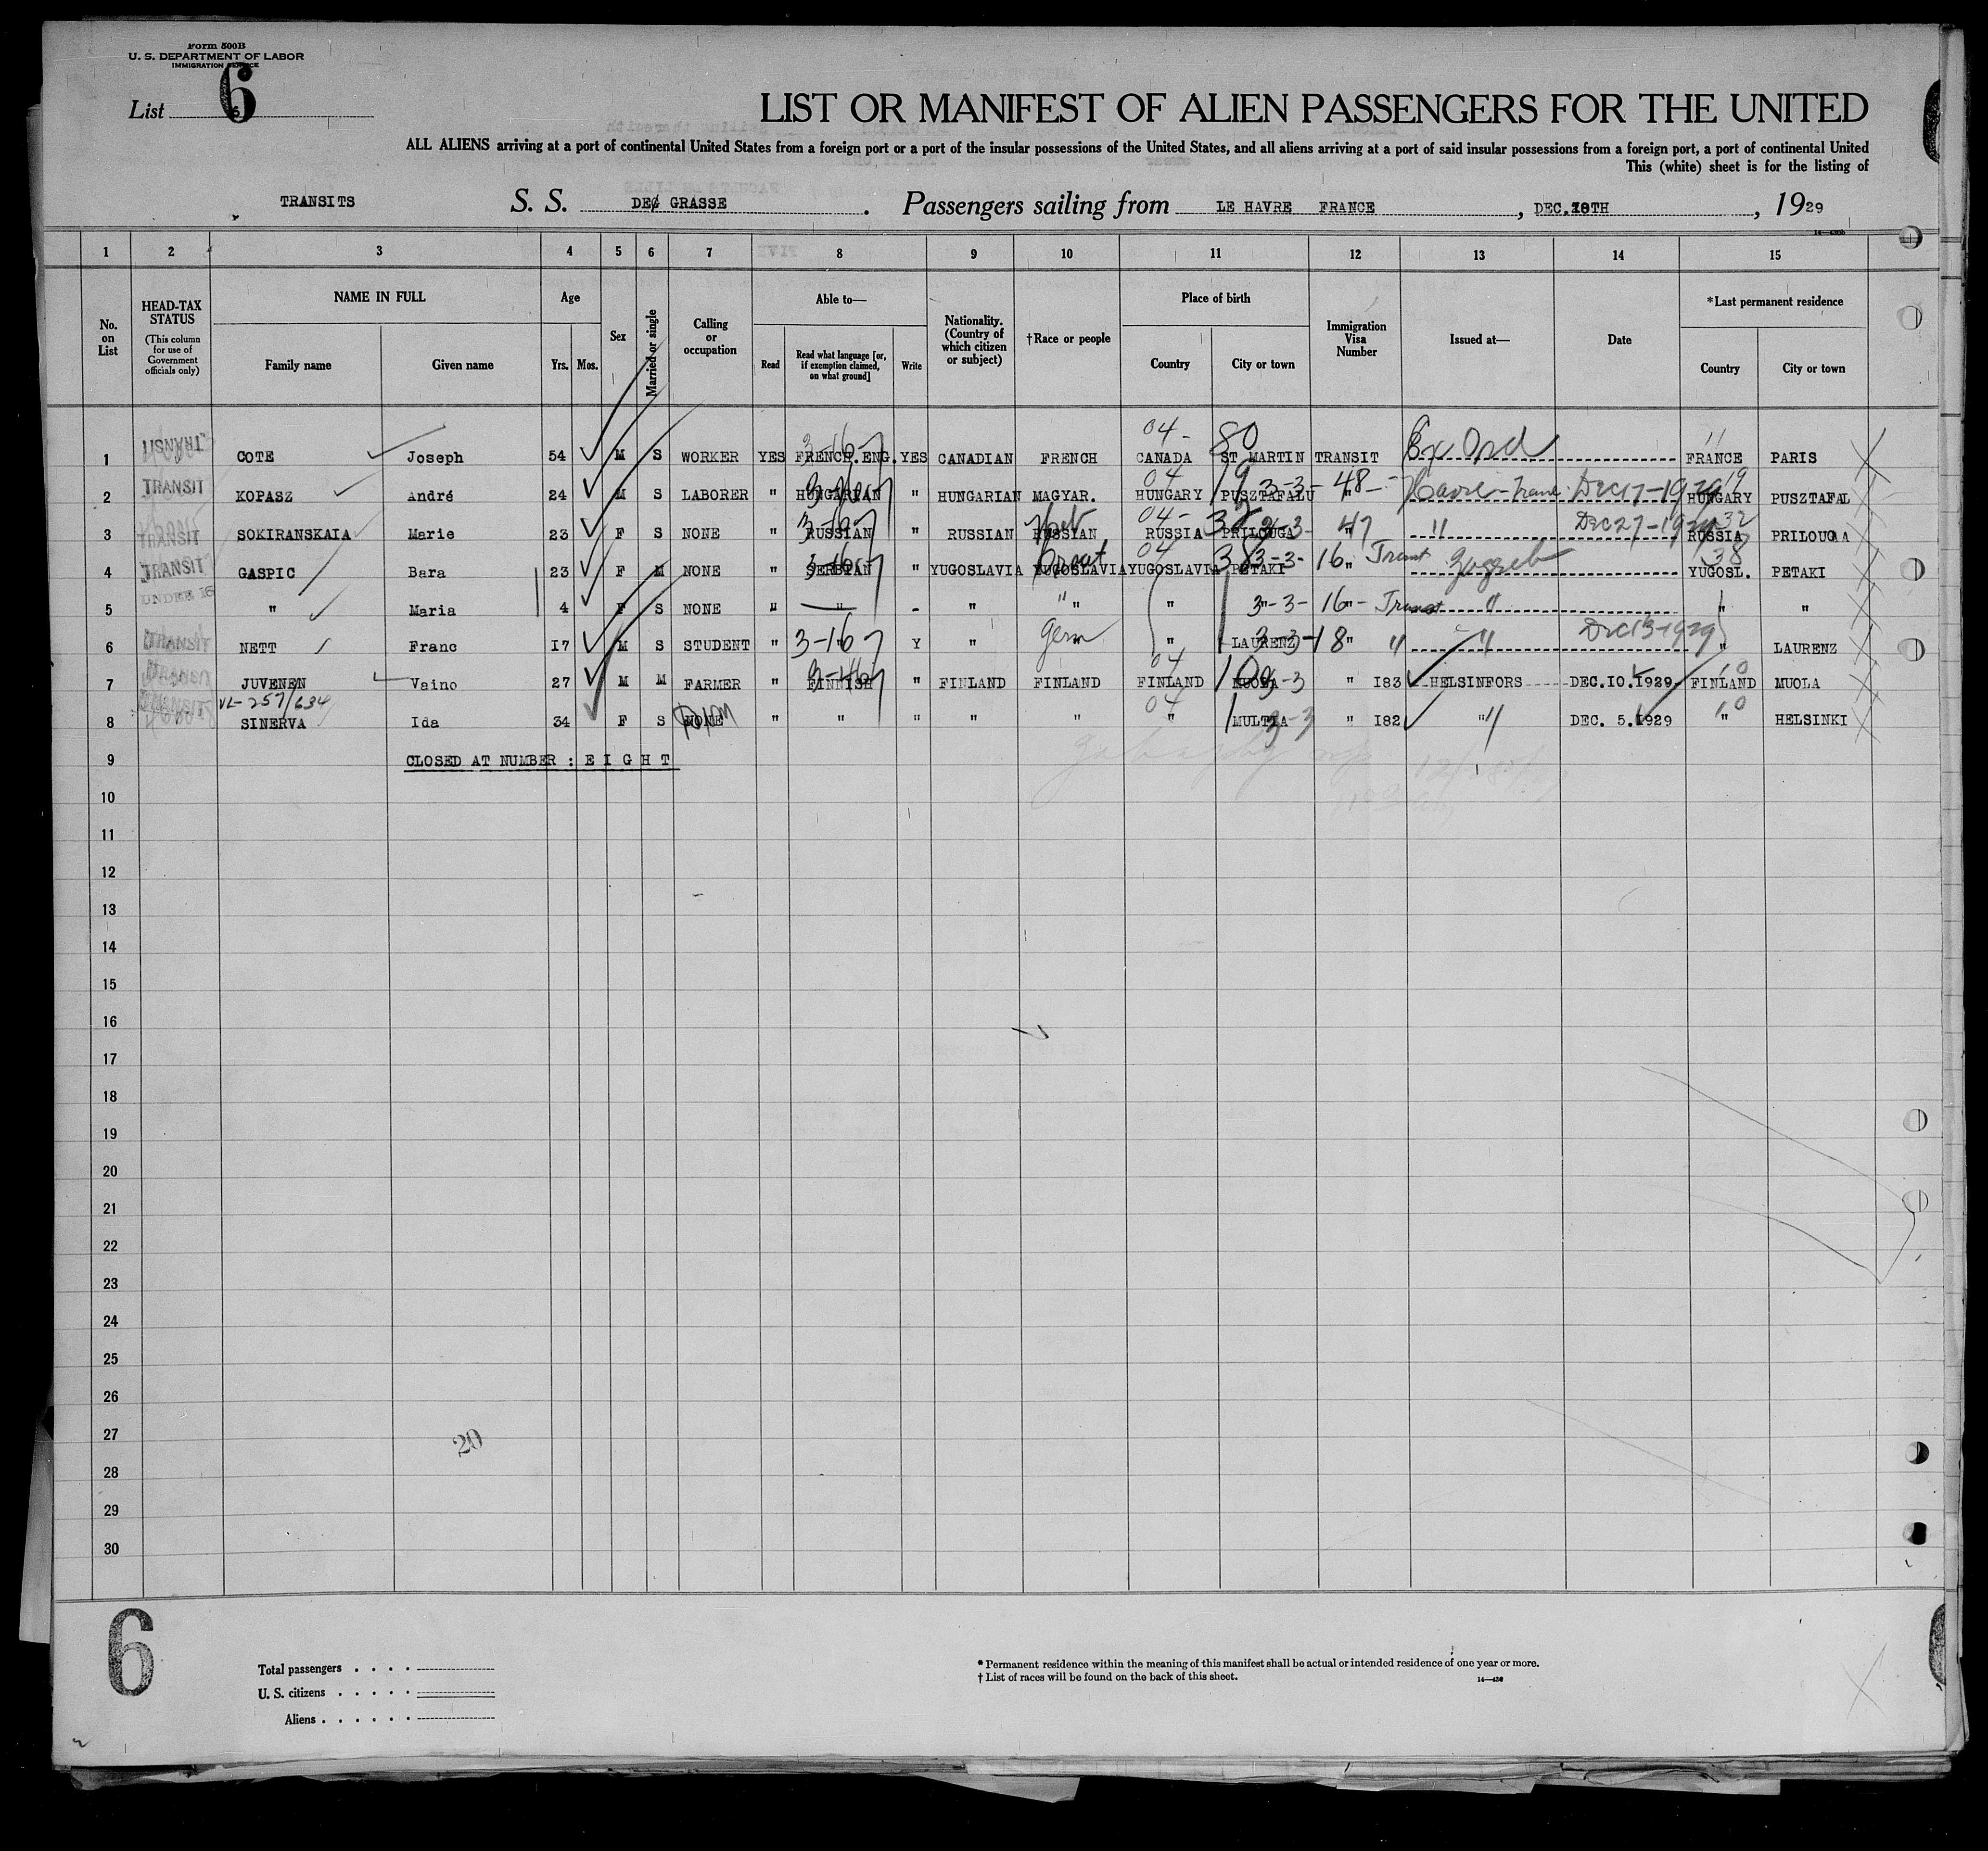 Form 500B
U. S. DEPARTMENT OF LABOR
IMMIGRATION SERVICE
List 6
LIST OR MANIFEST OF ALIEN PASSENGERS FOR THE UNITED
ALL ALIENS arriving at a port of continental United States from a foreign port or a port of the insular possessions of the United States, and all aliens arriving at a port of said insular possessions from a foreign port, a port of continental United
This (white) sheet is for the listing of
TRANSITS S. S. DE GRASSE. Passengers sailing from LE HAVRE FRANCE, DEC. 18TH, 1929
1 2 3 4 5 6 7 8 9 10 11 12 13 14 15
No. on List
HEAD-TAX STATUS
(This column for use of Government officials only)
NAME IN FULL
Family name Given name
Age
Yrs. Mos.
Sex
Married or single
Calling or occupation
Able to—
Read Read what language [or, if exemption claimed, on what ground] Write
Nationality. (Country of which citizen or subject)
†Race or people
Place of birth
Country City or town
Immigration Visa Number
Issued at—
Date
*Last permanent residence
Country City or town
04- 80 11
1 TRANSIT COTE Joseph 54 M S WORKER YES FRENCH.ENG. YES CANADIAN FRENCH CANADA ST MARTIN TRANSIT Ex Ord FRANCE PARIS
04 19 3-3-48 19
2 TRANSIT KOPASZ André 24 M S LABORER " HUNGARIAN " HUNGARIAN MAGYAR. HUNGARY PUSZTAFALU " Havre-France Dec 17-1929 HUNGARY PUSZTAFAL
3-16 Heb 04- 32 3-3-47 32
3 TRANSIT SOKIRANSKAIA Marie 23 F S NONE " RUSSIAN " RUSSIAN RUSSIAN RUSSIA PRILOUGA " " RUSSIA PRILOUGA
3-16 Croat 04 38 3-3-16 Transit 38
4 TRANSIT GASPIC Bara 23 F M NONE " SERBIAN " YUGOSLAVIA YUGOSLAVIA YUGOSLAVIA PETAKI " Zagreb YUGOSL. PETAKI
UNDER 16
5 " Maria 4 F S NONE " — " - " " " " 3-3-16 " Transit " " "
6 TRANSIT NETT Franc 17 M S STUDENT " 3-16 Y " Germ " LAURENZ 3-3-18 " " " Dec 13-1929 " LAURENZ
04 10 3-3 10
7 TRANSIT JUVENEN Vaino 27 M M FARMER " FINNISH " FINLAND FINLAND FINLAND MUOLA " 183 HELSINFORS DEC.10.1929 FINLAND MUOLA
VL-257/634 04 3-3 10
8 SINERVA Ida 34 F S NONE " " " " " " MULTIA " 182 " DEC. 5.1929 " HELSINKI
9 CLOSED AT NUMBER : E I G H T
10
11
12
13
14
15
16
17
18
19
20
21
22
23
24
25
26
27
20
28
29
30
6
Total passengers
U. S. citizens
Aliens
* Permanent residence within the meaning of this manifest shall be actual or intended residence of one year or more.
† List of races will be found on the back of this sheet.
14—430